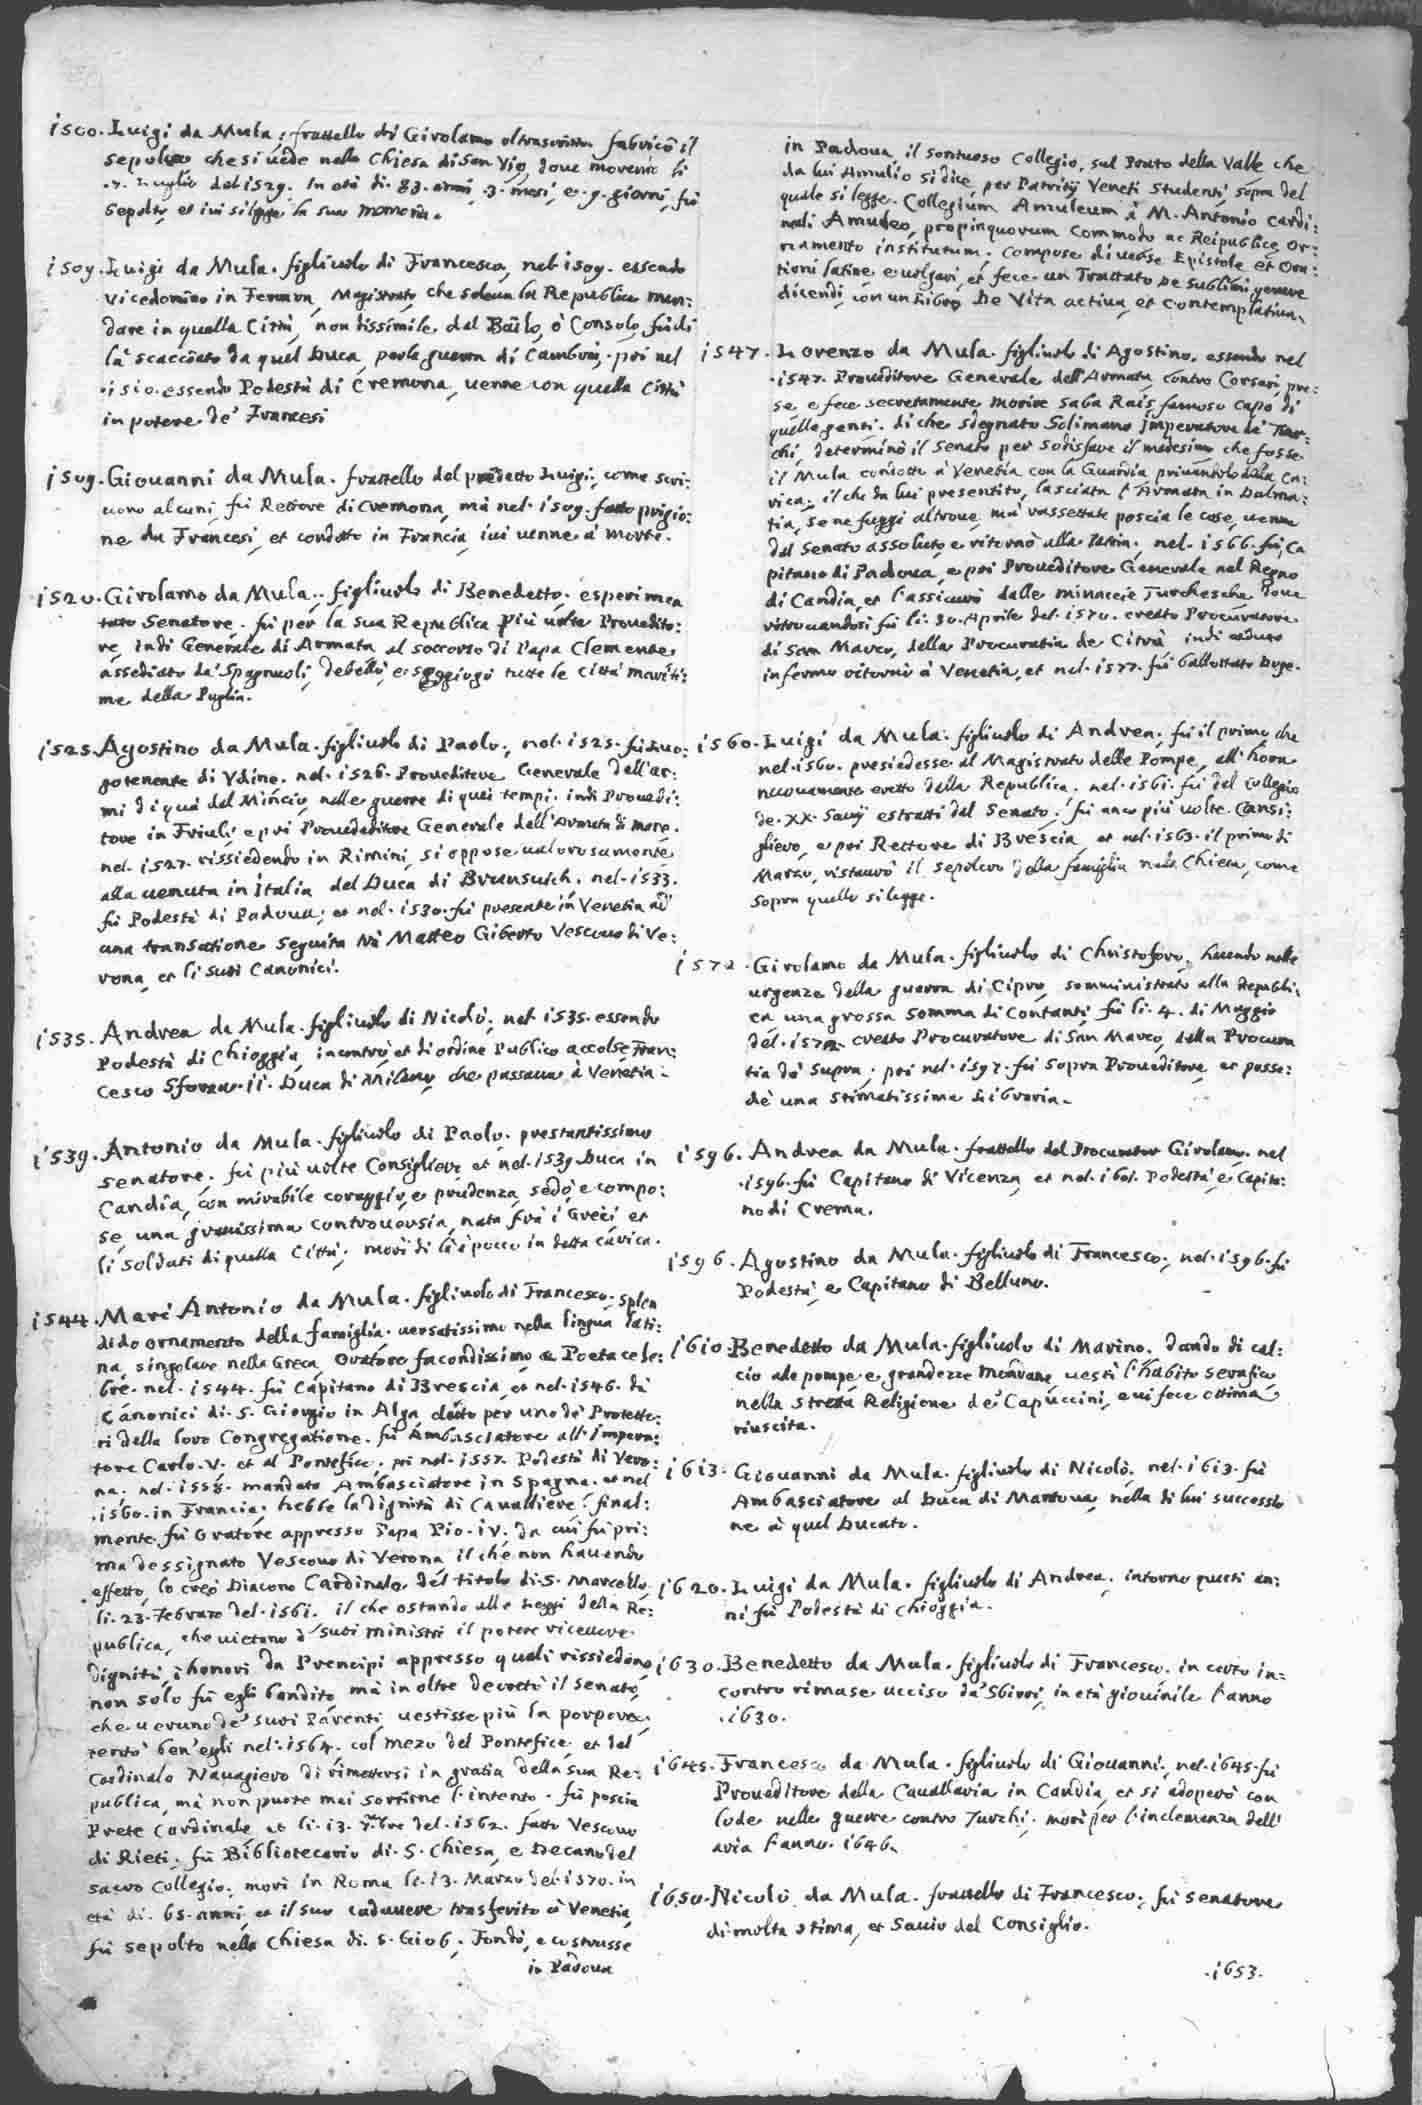 1500. Luigi da Mula, frattello di Girolamo oltrascritto fabricò il
sepolcro che si uede nella Chiesa di San Vio, doue morendo li
.7. Luglio del 1529. In età di .83. anni .3. mesi, e .9. giorni, fù
sepolto, et iui si legge la sua memoria.
1509. Luigi da Mula. figliuolo di Francesco, nel 1509. essendo
Vicedomino in Ferrara, Magistrato, che soleua la Republica man:
dare in quella Città, non dissimile dal Bailo, ò Consolo, fù di
là scacciato da quel Duca, per la guerra di Cambrai; poi nel
.1510. essendo Podestà di Cremona, uenne con quella Città
in potere de' Francesi
1509. Giouanni da Mula. frattello del predetto Luigi; come scri:
uono alcuni fù Rettore di Cremona, mà nel. 1509. fatto prigio:
ne da Francesi, et condotto in Francia, iui uenne à morte.
1520. Girolamo da Mula. figliuolo di Benedetto. esperimen
tato Senatore. fù per la sua Republica più uolte Proueditto:
re, indi Generale di Armata al soccorso di Papa Clemente
assediato da' Spagnuoli, debellò, e soggiogò tutte le Città mariti:
me della Puglia.
1525. Agostino da Mula. figliuolo di Paolo, nel. 1525. fù Luo:
gotenente di Vdine. nel. 1526. Proueditore Generale dell'ar:
mi di quà dal Mincio, nelle guerre di quei tempi. indi Prouedi:
tore in Friuli, e poi Prouedaditore Generale dell'Armata di mare.
nel. 1527. rissiedendo in Rimini, si oppose ualorosamente
alla uenuta in Italia del Duca di Brunsuich. nel. 1533.
fù Podestà di Padoua, et nel. 1530. fù presente in Venetia ad
una transatione seguita trà Matteo Giberto Vescouo di Ve:
rona, et li suoi Canonici.
1535. Andrea da Mula. figliuolo di Nicolò, nel 1535. essendo
Podestà di Chioggia, incontrò, et di ordine Publico accolse Fran:
cesco Sforza .ii. Duca di Milano, che passaua à Venetia.
1539. Antonio da Mula. figliuolo di Paolo. prestantissimo
senatore. fù più uolte Consigliere et nel. 1539. Duca in
Candia, con mirabile coraggio, e prudenza, sedò e compo:
se una grauissima controuersia, nata frà i Greci et
li soldati di quella Città. morì di là à pocco in detta carica.
1544. Marc' Antonio da Mula. figliuolo di Francesco. splen
dido ornamento della famiglia. uersatissimo nella lingua lati:
na, singolare nella Greca, Oratore facondissimo, e Poeta cele:
bre. nel. 1544. fù Capitano di Brescia, et nel. 1546. da
Canonici di. S. Giorgio in Alga, eletto per uno de' Protetto:
ri della loro Congregatione. fù Ambasciatore all'Impera:
tore Carlo. V. et al Pontefice. poi nel. 1557. Podestà di Vero:
na. nel. 1558. mandato Ambasciatore in Spagna. et nel
.1560. in Francia, hebbe la dignità di Caualliere. final:
mente fù Oratore appresso Papa Pio. iv. da cui fù pri:
ma dessignato Vescouo di Verona, il che non hauendo
effetto, lo creò Diacono Cardinale del titolo di. S. Marcello
li. 23. Febraro del. 1561. il che ostando alle Leggi della Re:
publica, che uietano à suoi ministri il potere riceuere
dignità, i honori da Prencipi appresso quali rissiedono,
non solo fù egli bandito, mà in oltre decretò il senato,
che ueruno de' suoi Parenti uestisse più la porpora.
tentò ben'egli nel. 1564. col mezo del Pontefice et del
Cardinale Nauagiero di rimettersi in gratia della sua Re:
publica, mà non puote mai sortirne l'intento. fù poscia
Prete Cardinale, et li. 13. 7mbre del. 1562. fatto Vescouo
di Rieti. fù Bibliotecario di. S. Chiesa, e Decano del
sacro Collegio. morì in Roma li. 13. Marzo del. 1570. in
età di. 65. anni, et il suo cadauere trasferito à Venetia,
fù sepolto nella Chiesa di. S. Giob. Fondò, e costrusse
in Padoua
in Padoua, il sontuoso Collegio, sul Prato della Valle, che
da lui Amulio si dice, per Patritij Veneti studenti, sopra del
quale si legge. Collegium Amuleum à M. Antonio Cardi:
nali Amuleo, propinquorum commodo ac Reipublicę or:
namento institutum. Compose diuerse Epistole et Ora:
tioni latine, e uolgari, et fece un Trattato De sublimi genere
dicendi, con un libro De Vita actiua, et contemplatiua.
1547. Lorenzo da Mula. figliuolo di Agostino. essendo nel
.1547. Proueditore Generale dell'Armata, contro Corsari, pre:
se, e fece secretamente morire Saba Rais famoso capo di
quelle genti. di che sdegnato Solimano imperatore de' Tur:
chi, determinò il Senato per sodisfare il medesimo che fosse
il Mula condotto à Venetia con la Guardia priuandolo della ca:
rica. il che da lui presentito, lasciata l'Armata in Dalma:
tia, se ne fuggì altroue, mà rassettate poscia le cose, uenne
dal Senato assoluto, e ritornò alla Patria. nel. 1566. fù Ca
pitano di Padoua, e poi Proueditore Generale nel Regno
di Candia, et l'assicurò dalle minaccie Turchesche doue
ritrouandosi fù li. 30. Aprile del. 1570. creato Procuratore
di San Marco, della Procuratia de Citrà indi caduto
infermo ritornò à Venetia, et nel. 1577. fù ballottato Doge.
1560. Luigi da Mula. figliuolo di Andrea. fù il primo che
nel. 1560. presiedesse al Magistrato delle Pompe, all'hora
nuouamente eretto dalla Republica. nel. 1561. fù del collegio
de. XX. Sauij estratti dal Senato. fù anco più uolte Consi:
gliero, e poi Rettore di Brescia, et nel. 1563. il primo di
Marzo, ristaurò il sepolcro della famiglia nella Chiesa, come
sopra quello si legge.
1572. Girolamo da Mula. figliuolo di Christoforo. hauendo nelle
urgenze della guerra di Cipro, somministrato alla Republi:
ca una grossa somma di Contanti, fù li. 4. di Maggio
del. 1572 creato Procuratore di San Marco, della Procura
tia de' supra. poi nel. 1597. fù sopra Proueditore, et posse:
dè una stimatissima Libraria.
1596. Andrea da Mula. frattello del Procurator Girolamo. nel
.1596. fù Capitano di Vicenza, et nel. 1601. Podestà e Capita:
no di Crema.
1596. Agostino da Mula. figliuolo di Francesco, nel. 1596. fù
Podestà, e Capitano di Belluno.
1610. Benedetto da Mula. figliuolo di Marino. dando di cal:
cio alle pompe, e grandezze mondane uestì l'habito serafico
nella stretta Religione de' Capuccini, e ui fece ottima
riuscita.
1613. Giouanni da Mula. figliuolo di Nicolò. nel. 1613. fù
Ambasciatore al Duca di Mantoua, nella di lui successio
ne à quel Ducato.
1620. Luigi da Mula. figliuolo di Andrea. intorno questi an:
ni fù Podestà di Chioggia.
1630. Benedetto da Mula. figliuolo di Francesco. in certo in:
contro rimase ucciso da' Sbirri, in età giouinile l'anno
.1630.
1645. Francesco da Mula. figliuolo di Giouanni, nel. 1645. fù
Proueditore della Cauallaria in Candia, et si adoperò con
lode nelle guerre contro Turchi. morì per l'inclemenza dell'
aria l'anno. 1646.
1650. Nicolò da Mula. frattello di Francesco. fù senatore
di molta stima, et Sauio del Consiglio.
.1653.